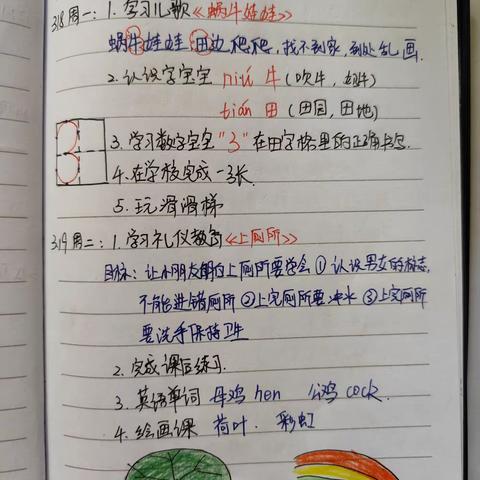 3.18 周一：1. 学习儿歌《蜗牛娃娃》
蜗牛娃娃 田边爬爬，找不到家，到处乱画.
2. 认识字宝宝 niú 牛（吹牛，奶牛）
tián 田（田园，田地）
3. 学习数字宝宝"3"在田字格里的正确书写.
4. 在学校完成一张.
5. 玩滑滑梯
3.19 周二：1. 学习礼仪教育《上厕所》
目标：让小朋友明白上厕所要学会①认识男女的标志,
不能进错厕所②上完厕所要冲水③上完厕所
要洗手保持卫生
2. 完成课后练习.
3. 英语单词 母鸡 hen 公鸡 cock.
4. 绘画课 荷叶. 彩虹